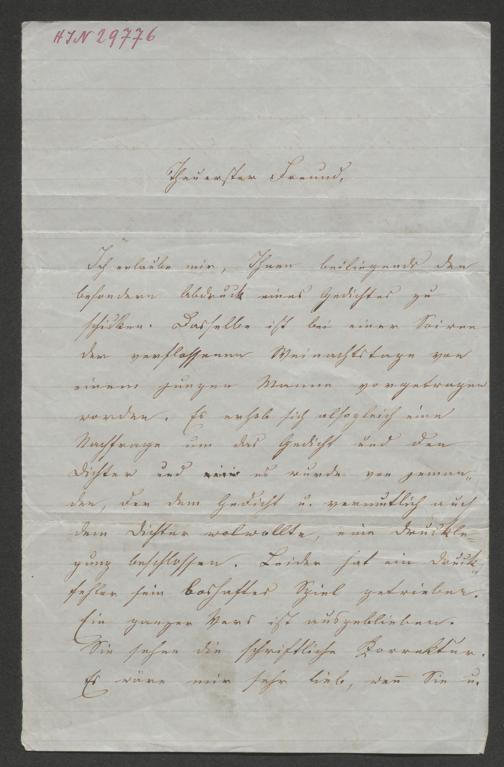 HIN 29776
Theuerster Freund,
Ich erlaube mir, Ihnen beiliegends den
besondern Abdruck eines Gedichtes zu
schicken. Dasselbe ist bei einer Soiree
der verflossenen Weinachtstage von
einem jungen Manne vorgetragen
worden. Es erhob sich alsogleich eine
Nachfrage um das Gedicht und den
Dichter und es wurde von jeman„
den, der dem Gedicht u. vermutlich auch
dem Dichter wolwollte, eine Druckle„
gung beschlossen. Leider hat ein Druck„
fehler sein boshaftes Spiel getrieben.
Ein ganzer Vers ist ausgeblieben.
Sie sehen die schriftliche Korrektur.
Es wäre mir sehr lieb, wenn Sie u.